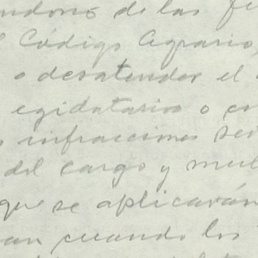 ndono de las fu
l Código Agrario,
o desatender el
egidatario o co
infracciones ser
del cargo y mul
que se aplicarán
an cuando los